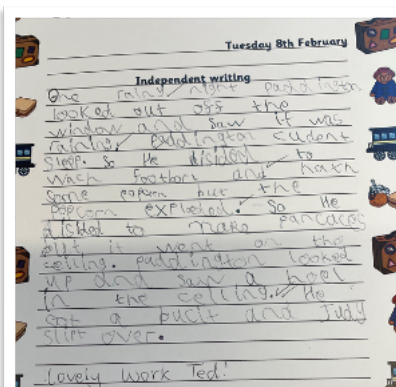 Tuesday 8th February
Independent writing
One rainy night paddington
looked out off the
window and saw it was
raining. Paddington cudent
sleep. So He disided to
wach football and hath
some popcorn but the
popcorn exploded. So He
disided to make pancaces
but it went on the
ceiling. paddington looked
up and saw a hoel
in the celling. He
got a bucit and Judy
slipt over.
Lovely work Ted!